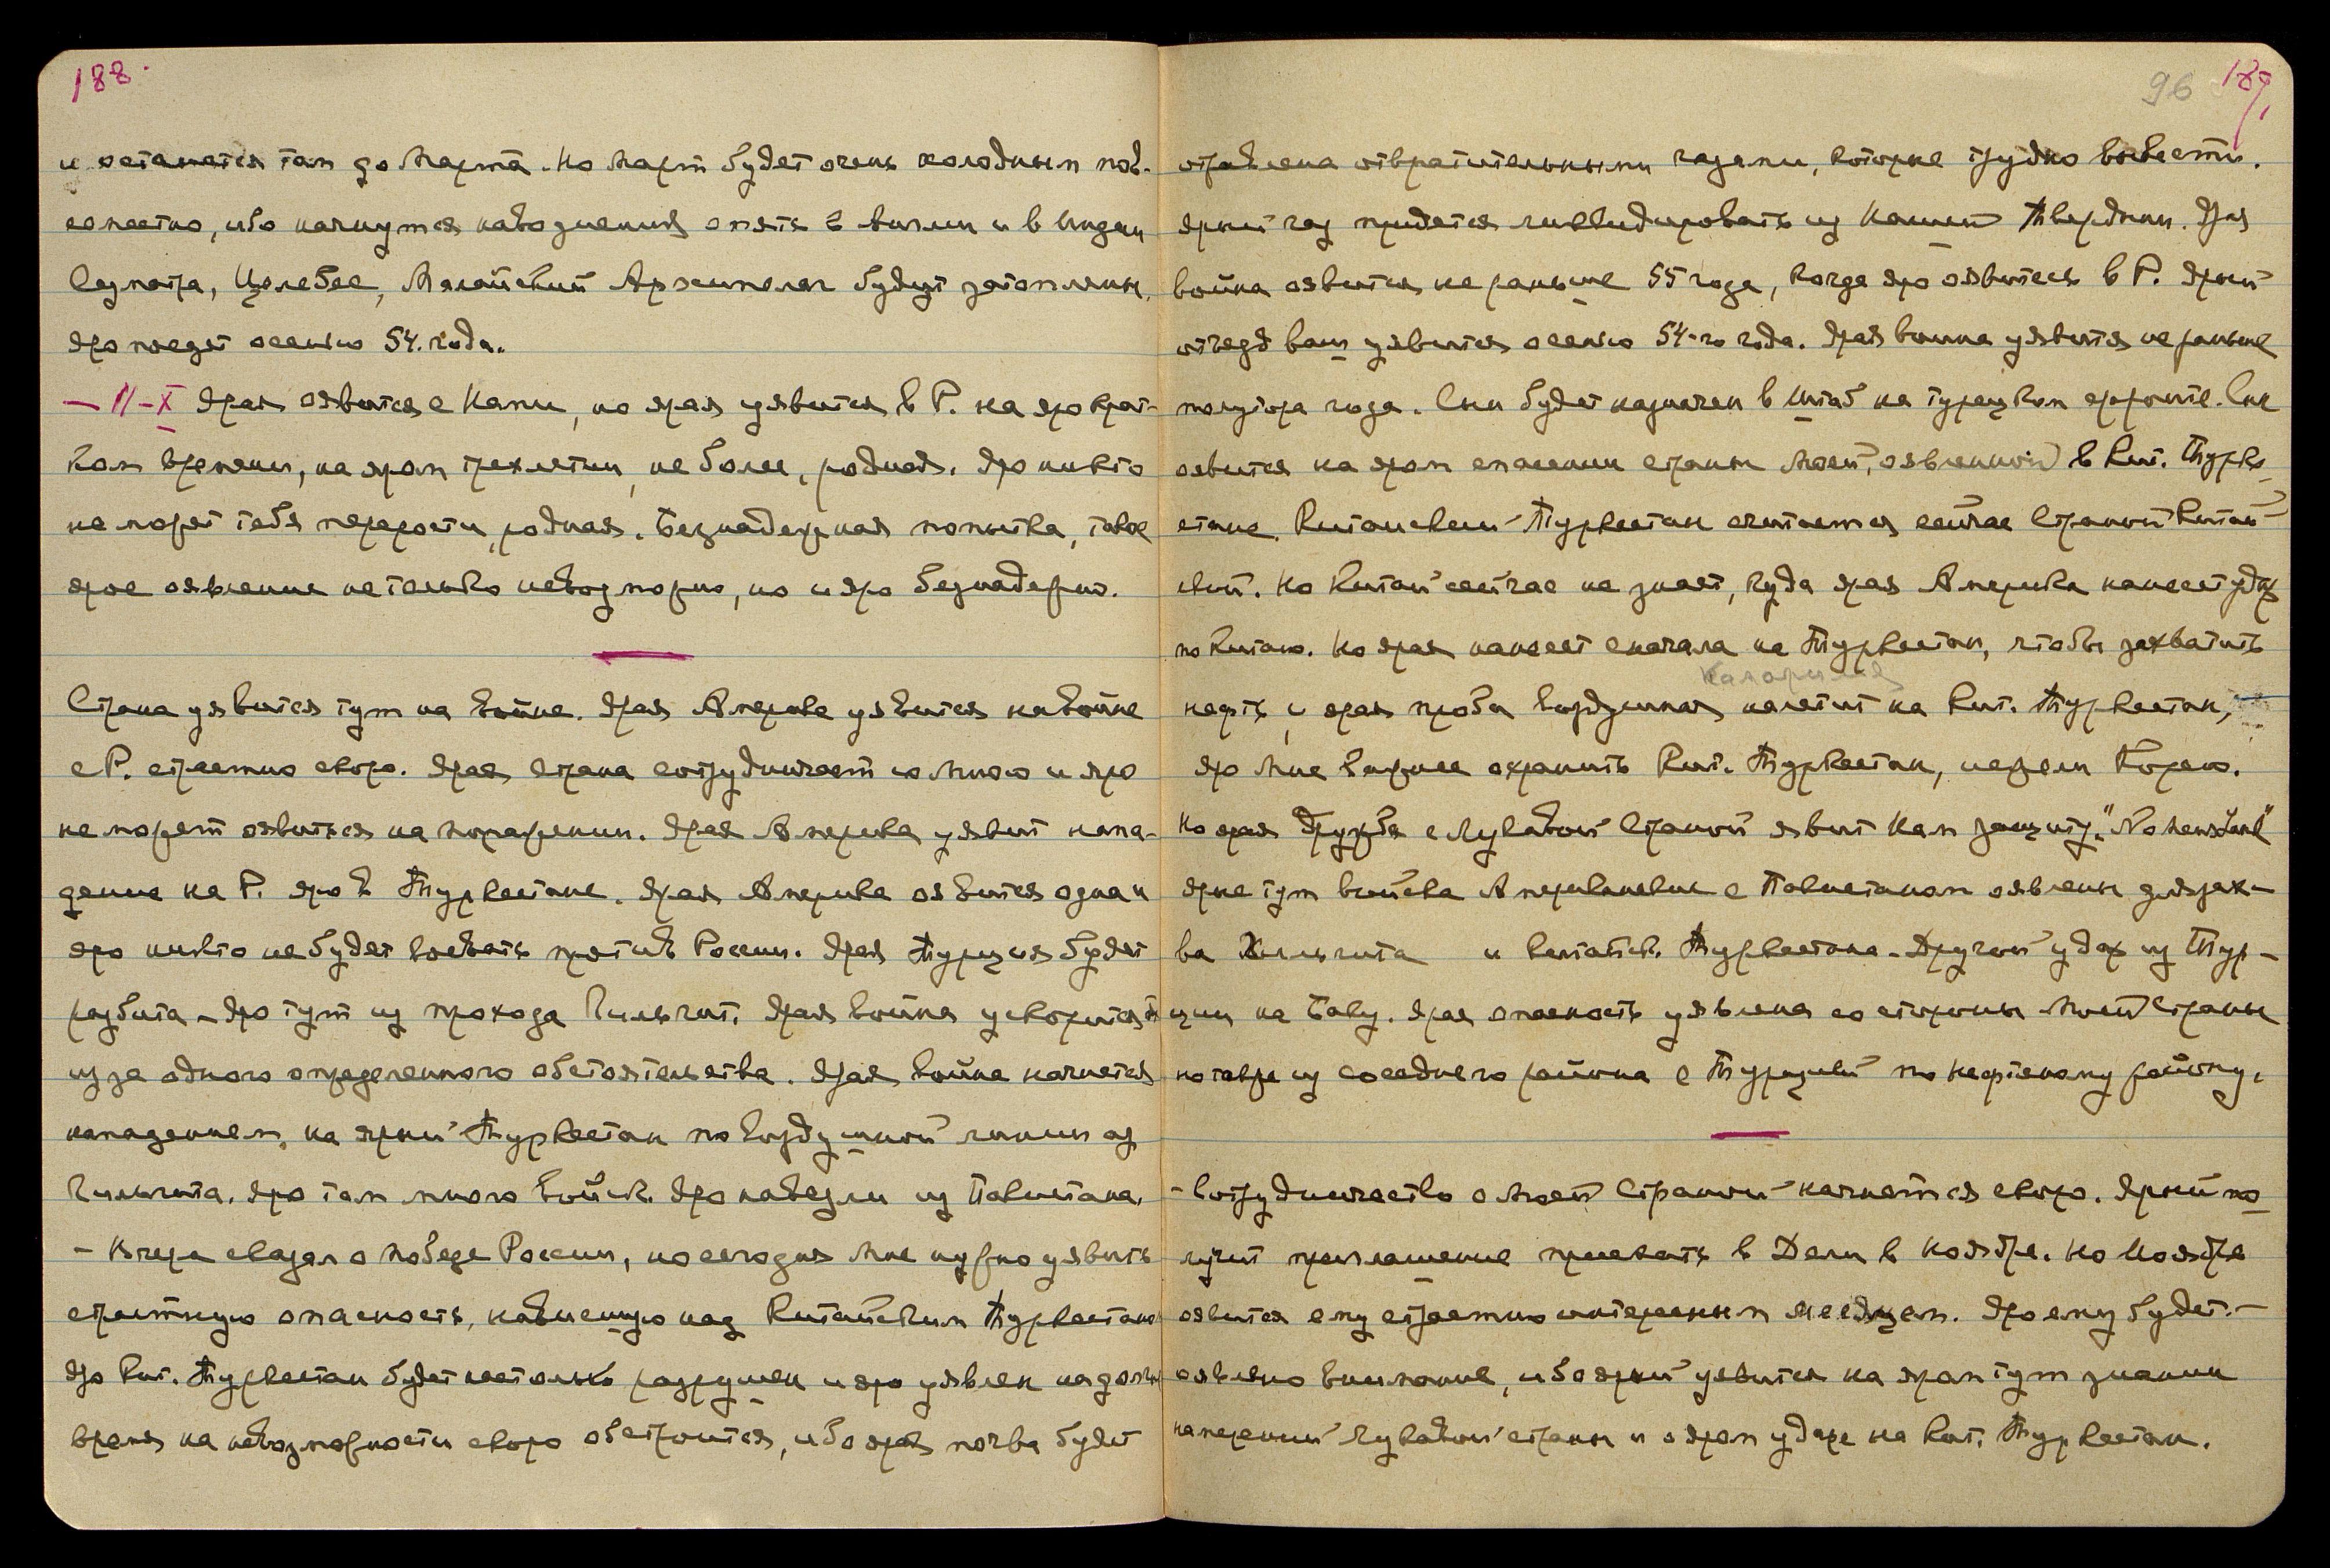 188.
и останется там до Марта. Но Март будет очень холодным пов-
семестно, ибо начнутся наводнения опять в Чили и в Индии
Суматра, Целебес, Малайский Архипелаг будут затоплены.
Яро поедет осенью 54. года.
— 11-X Ярая оявится с Нами, но ярая уявится в Р. на яро крат-
ком времени, на яром трехлетии, не более, родная. Яро никто
не может тебя перерасти, родная. Безнадежная попытка, такое
ярое оявление не только невозможно, но и яро безнадежно.
Страна уявится тут на войне. Ярая Америка уявится на войне
с Р. страстно скоро. Ярая страна сотрудничает со Мною и яро
не может оявиться на поражении. Ярая Америка уявит напа-
дение на Р. яро в Туркестане. Ярая Америка оявится одна и
яро никто не будет воевать против России. Ярая Турция будет
разбита – яро тут из прохода Гильгит. Ярая война ускорится
из за одного определенного обстоятельства. Ярая война начнется
нападением, на ярый Туркестан по воздушной линии из
Гильгита. Яро там много войск. Яро навезли из Пакистана.
– Вчера сказал о победе России, но сегодня Мне нужно уявить
страстную опасность, нависшую над Китайским Туркестаном
Яро Кит. Туркестан будет настолько разрушен и яро уявлен на долгое
время на невозможности скоро обстроится, ибо ярая почва будет
96 189.
отравлена отвратительными газами, которые трудно вывести.
Ярый газ придется ликвидировать из Нашей Твердыни. Ярая
война оявится не раньше 55 года, когда яро оявитесь в Р. Ярый
отъезд ваш уявится осенью 54-го года. Ярая война уявится не раньше
полутора года. Сын будет назначен в Штаб на турецком фронте. Он
оявится на яром спасении страны Моей, оявленной в Кит. Турке-
стане. Китайский Туркестан считается сейчас Страной Китай-
ской. Но Китай сейчас не знает, куда ярая Америка нанесет удар
по Китаю. Но ярая нанесет сначала на Туркестан, чтобы захватить
нефть, и ярая проба воздушная налетит на Кит. Туркестан,
Яро Мне важнее охранить Кит. Туркестан, нежели Корею.
Но ярая Дружба с Лукавой Страной явит Нам защиту. "No mens land"
ярые тут войска Американские с Пакистаном оявлены для зах-
ва Гильгита и Китайск. Туркестана. Другой удар из Тур-
ции на Баку. Ярая опасность уявлена со стороны Моей Страны
но также из соседнего района с Турцией по нефтяному району.
– Сотрудничество с Моей Страной начнется скоро. Ярый по
лучит приглашение приехать в Дели в Ноябре. Но Ноябрь
оявится ему страстно интересным месяцем. Яро ему будет –
оявлено внимание, ибо ярый уявится на яром тут знании
намерений лукавой страны и о яром ударе на Кит. Туркестан.